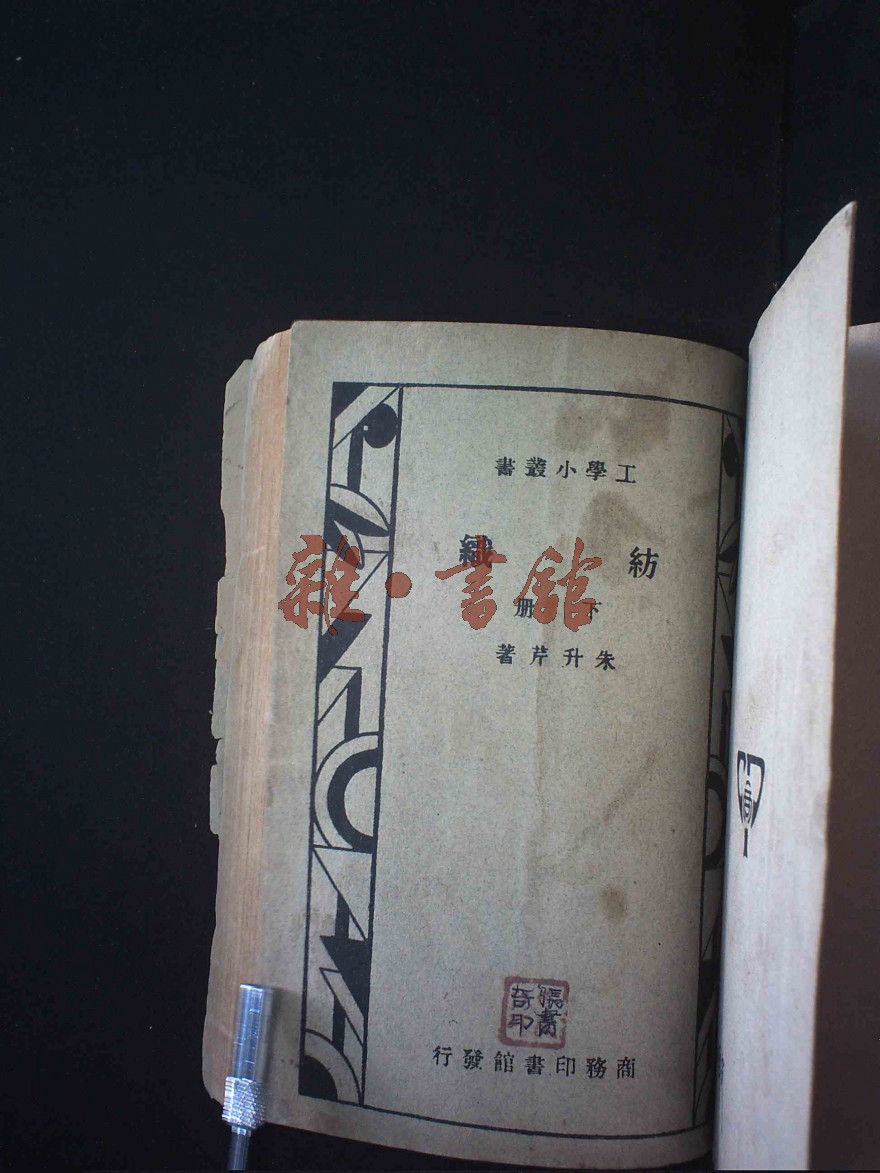 工學小叢書
紡織
下册
朱升芹著
張書奇印
商務印書館發行
雜·書館
商